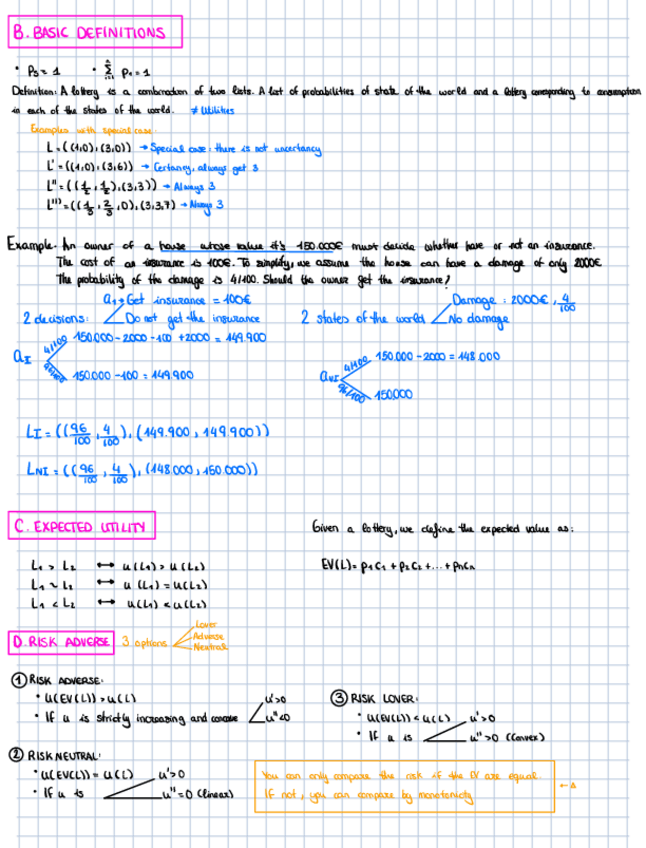 B. BASIC DEFINITIONS
• Ps = 1 • Σ p₁ = 1
Definition: A lottery is a combination of two lists. A list of probabilities of state of the world and a lottery corresponding to consumption
in each of the states of the world. ≠ Utilities
Examples with special case:
L = ((1,0),(3,0)) → Special case: there is not uncertancy
L' = ((1,0),(3,6)) → Certancy, always get 3
L'' = ((1/2, 1/2),(3,3)) → Always 3
L''' = ((1/3, 2/3, 0),(3,3,7)) → Always 3
Example: An owner of a house whose value it's 150.000€ must decide whether have or not an insurance.
The cost of an insurance is 100€. To simplify, we assume the house can have a damage of only 2000€
The probability of the damage is 4/100. Should the owner get the insurance?
2 decisions: a₁ → Get insurance = 100€
Do not get the insurance
2 states of the world Damage: 2000€, 4/100
No damage
aI 4/100 150.000 - 2000 - 100 + 2000 = 149.900
96/100 150.000 - 100 = 149.900
aNI 4/100 150.000 - 2000 = 148.000
96/100 150.000
LI = ((96/100, 4/100), (149.900, 149.900))
LNI = ((96/100, 4/100), (148.000, 150.000))
C. EXPECTED UTILITY
Given a lottery, we define the expected value as:
L₁ > L₂ ↔ u(L₁) > u(L₂)
L₁ ~ L₂ ↔ u(L₁) = u(L₂)
L₁ < L₂ ↔ u(L₁) < u(L₂)
EV(L) = p₁C₁ + p₂C₂ + ... + pnCn
D. RISK ADVERSE 3 options Lover
Adverse
Neutral
① RISK ADVERSE:
• u(EV(L)) > u(L)
• If u is strictly increasing and concave u'>0
u''<0
② RISK NEUTRAL:
• u(EV(L)) = u(L)
• If u is u'>0
u''=0 (linear)
③ RISK LOVER:
• u(EV(L)) < u(L)
• If u is u'>0
u''>0 (Convex)
You can only compare the risk if the EV are equal.
If not, you can compare by monotonicity